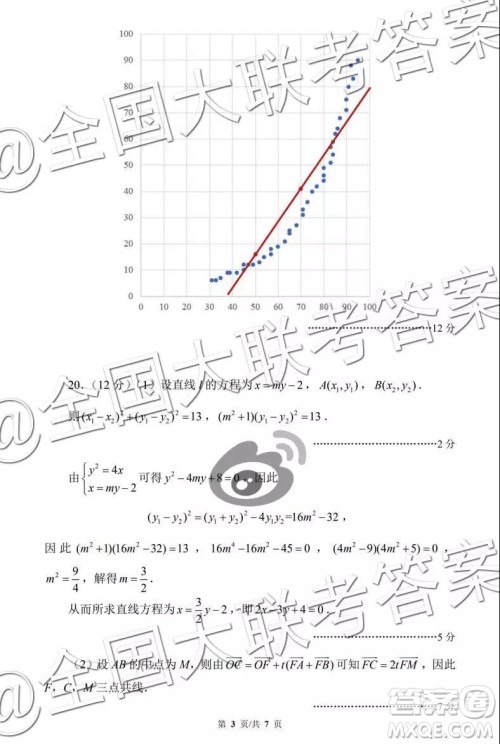 100
90
80
70
60
50
40
30
20
10
0
0 10 20 30 40 50 60 70 80 90 100
@全国大联考答案
…………………………………12 分
@全国大联考答案
20.（12 分）（1）设直线 l 的方程为 x=my−2，A(x₁,y₁)，B(x₂,y₂)．
则(x₁−x₂)²+(y₁−y₂)²=13，(m²+1)(y₁−y₂)²=13．
…………………………………2 分
由{y²=4x x=my−2 可得 y²−4my+8=0，因此
(y₁−y₂)²=(y₁+y₂)²−4y₁y₂=16m²−32，
因此 (m²+1)(16m²−32)=13，16m⁴−16m²−45=0，(4m²−9)(4m²+5)=0，
m²=9/4，解得 m=3/2．
从而所求直线方程为 x=3/2y−2，即 2x−3y+4=0．
…………………………………5 分
@全国大联考答案
（2）设 AB 的中点为 M，则由OC=OF+t(FA+FB)可知FC=2tFM，因此
F，C，M 三点共线．
第 3 页/共 7 页
答案圈
MXQE.COM